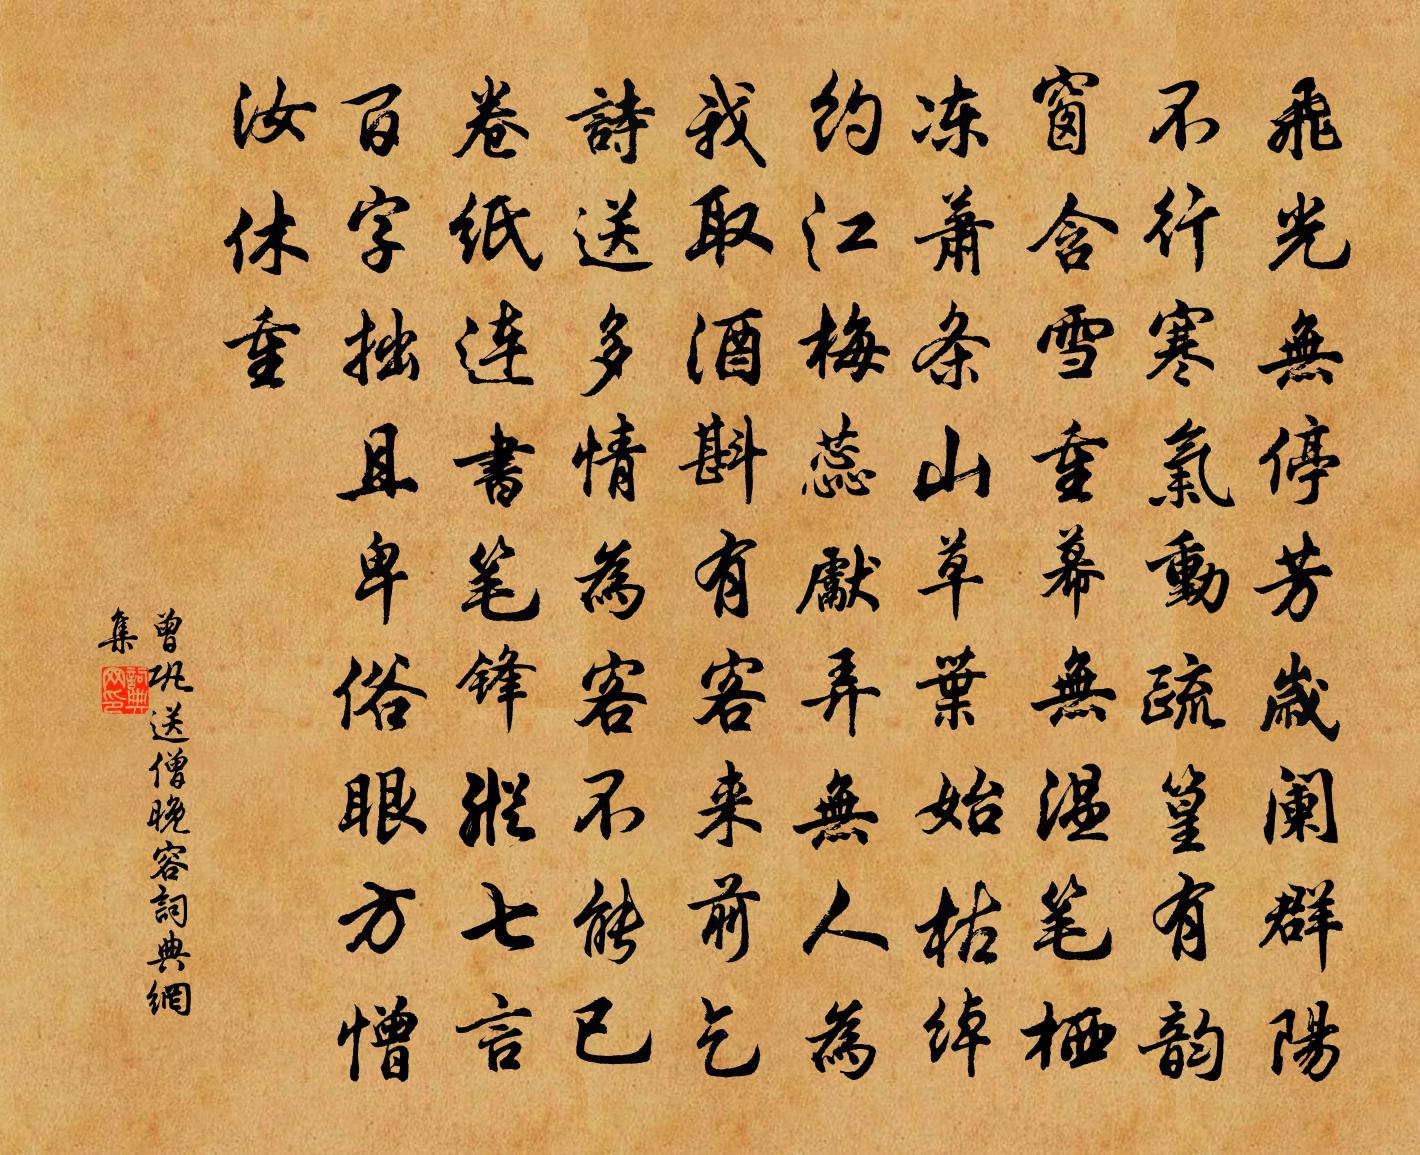 飛光無停芳歲闌群陽
不行寒氣動疏篁有韵
窗含雪重幕無温笔栖
冻蕭条山草葉始枯绰
约江梅蕊獻弄無人為
我取酒斟有客来前乞
詩送多情為客不能已
卷纸连書笔锋縱七言
百字拙且卑俗眼方憎
汝休重
曾巩送僧晚容詞典網
集